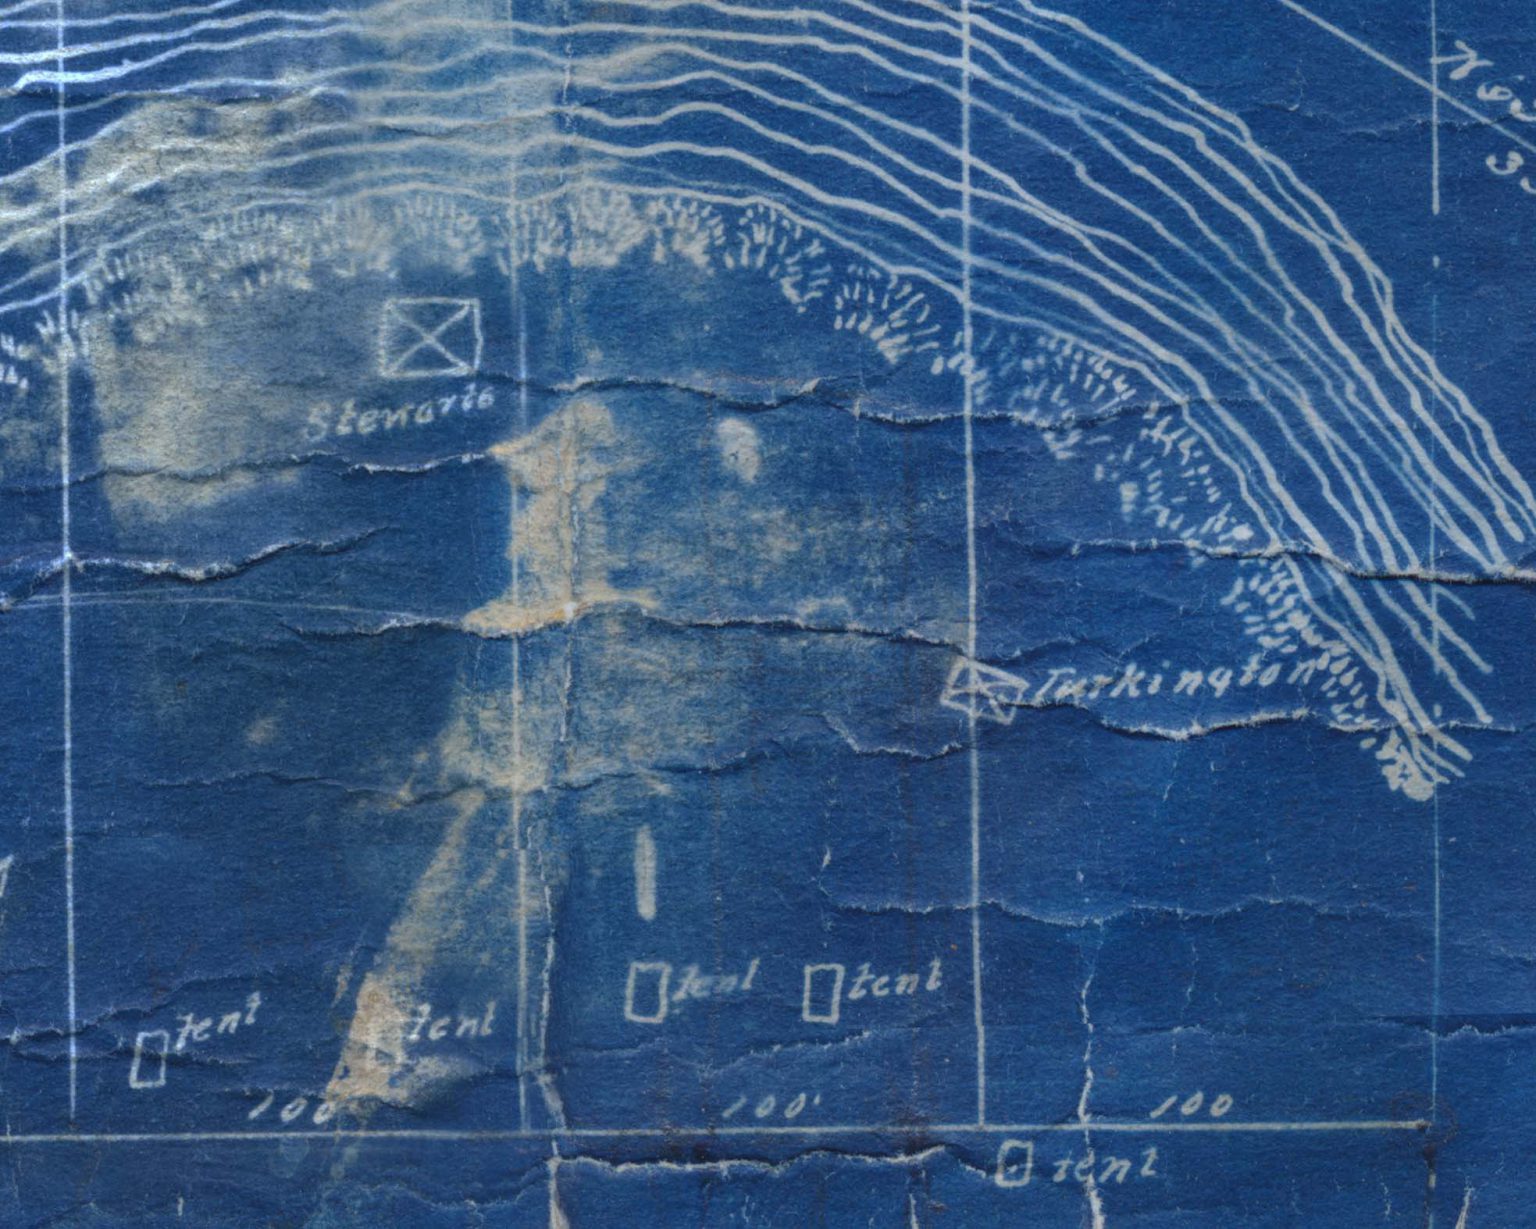 Stewarts
Turkington
tent
tent
tent
tent
100'
100'
100
tent